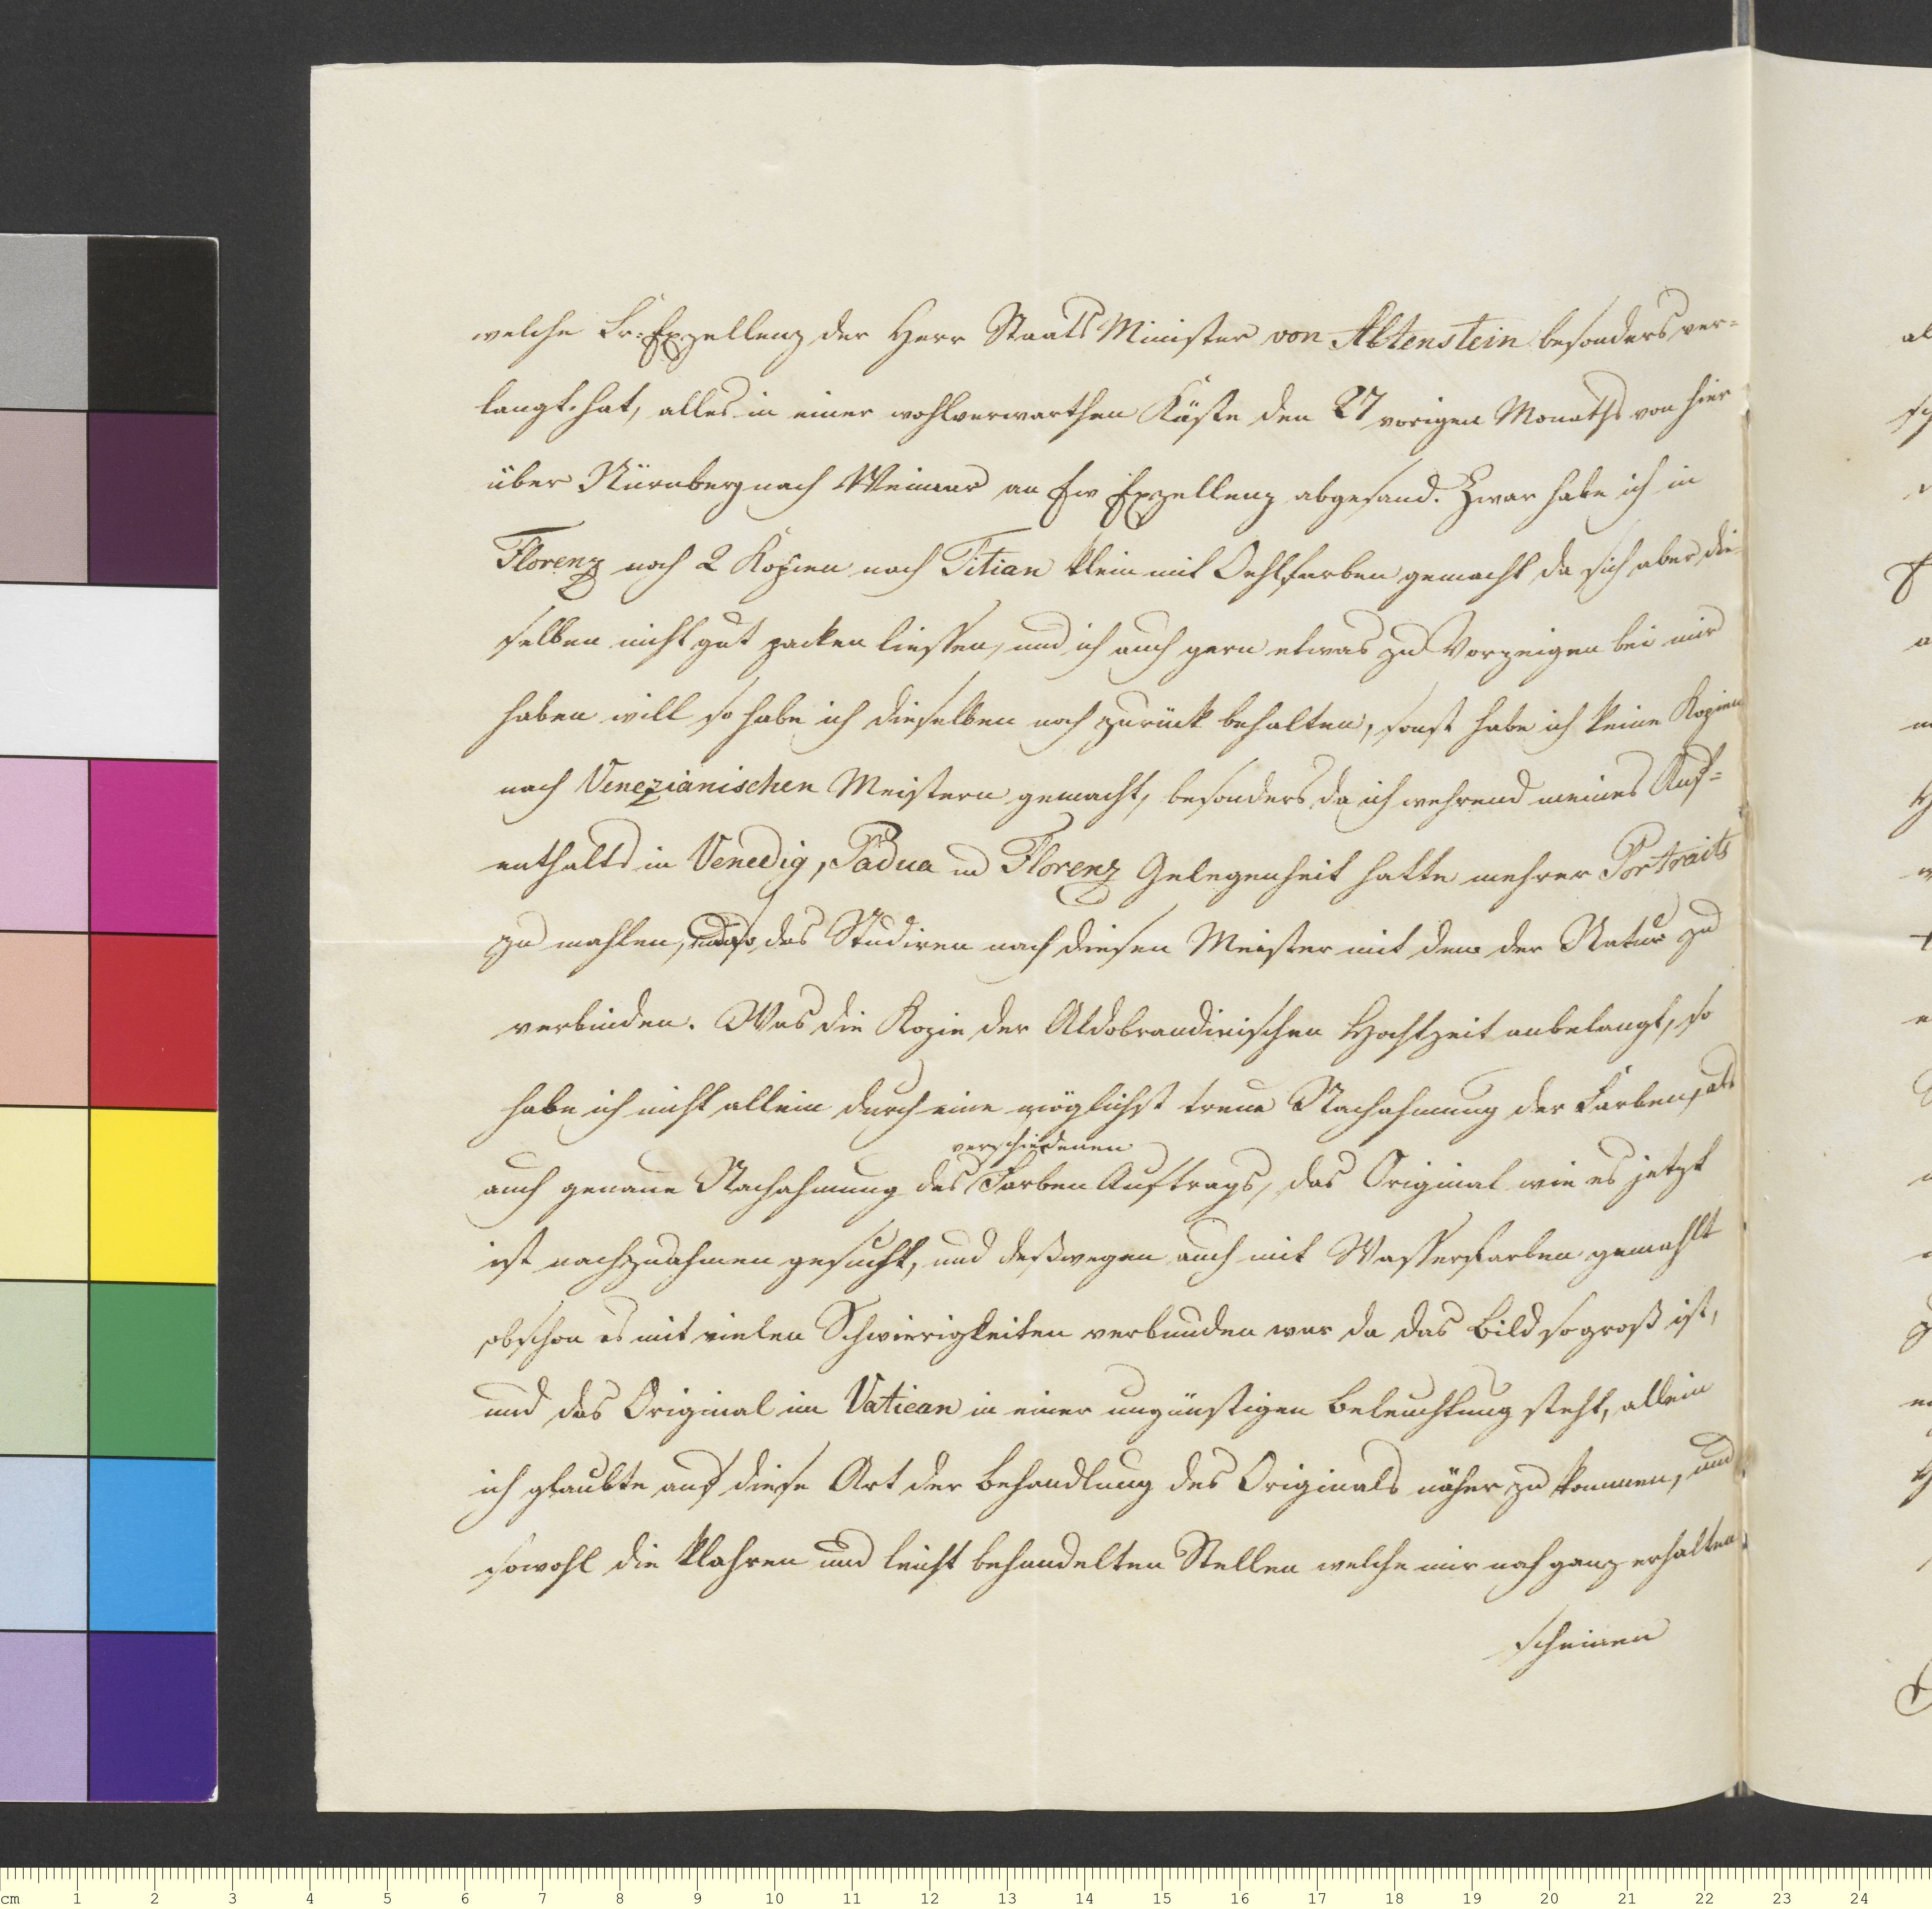 welche Sr: Exzellenz der Herr Staats Minister von Altenstein besonders ver-
langt hat, alles in einer wohlverwarthen Käste den 27 vorigen Monaths von hier
über Nürnberg nach Weimar an Ew Exzellenz abgesand. Zwar habe ich in
Florenz noch 2 Kopien nach Titian klein mit Oehlfarben gemacht da sich aber die-
selben nicht gut packen liessen, und ich auch gern etwas zu Vorzeigen bei mir
haben will so habe ich dieselben noch zurück behalten, sonst habe ich keine Kopien
nach Venezianischen Meistern gemacht, besonders da ich wehrend meines Auf-
enthalts in Venedig, Padua und Florenz Gelegenheit hatte mehrer Portraits
zu mahlen, und so das Studiren nach diesen Meister mit dem der Natur zu
verbinden. Was die Kopie der Aldobrandinischen Hochzeit anbelangt, so
habe ich nicht allein durch eine möglichst treue Nachahmung der Farben, als
verschiedenen
auch genaue Nachahmung des Farben Auftrags, das Original wie es jetzt
ist nachzuahmen gesucht, und deßwegen auch mit Wasserfarben gemahlt
obschon es mit vielen Schwierigkeiten verbunden war da das Bild so groß ist,
und das Original im Vatican in einer ungünstigen Beleuchtung steht, allein
ich glaubte auf diese Art der Behandlung des Originals näher zu kommen, und
sowohl die klahren und leicht behandelten Stellen welche mir noch ganz erhalten
scheinen
cm 1 2 3 4 5 6 7 8 9 10 11 12 13 14 15 16 17 18 19 20 21 22 23 24